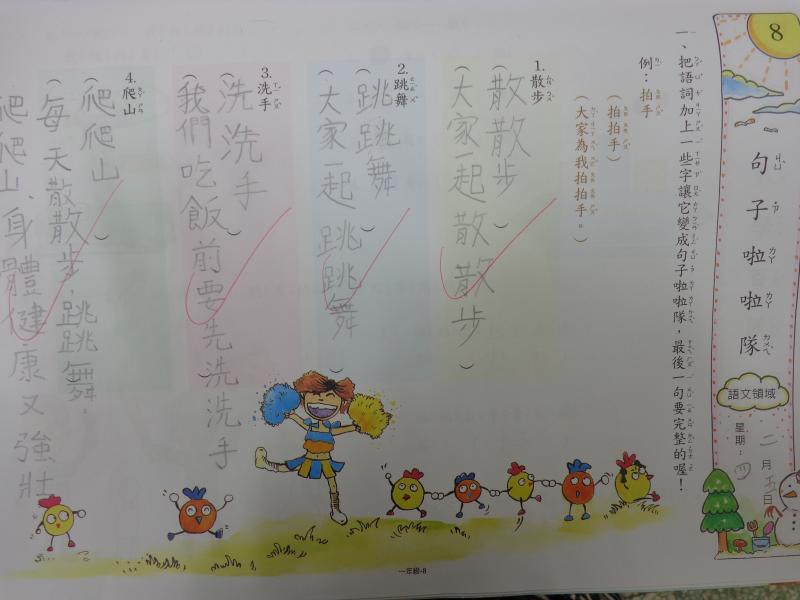 8
句子啦啦隊
語文領域
二月五日
星期:四
一、把語詞加上一些字讓它變成句子啦啦隊,最後一句要完整的喔!
例:拍手
(拍拍手)
(大家為我拍拍手。)
1.散步
(散散步)
(大家一起散散步)
2.跳舞
(跳跳舞)
(大家一起跳跳舞)
3.洗手
(洗洗手)
(我們吃飯前要先洗洗手
4.爬山
(爬爬山)
(每天散散步,跳跳舞.
爬爬山、身體健康又強壯
一年級-8